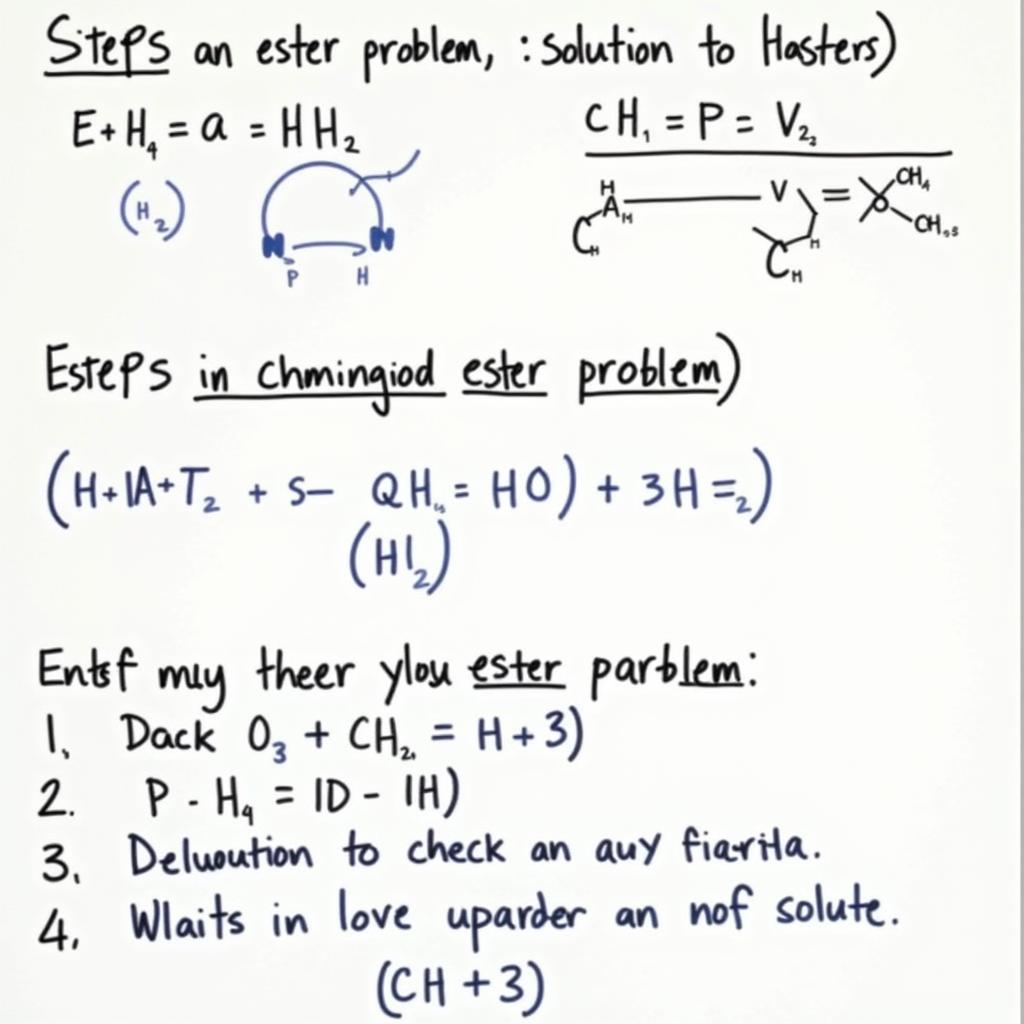 Steps an ester problem, : Solution to Hasters)
E+H₄ = a = HH₂
CH₁ = P = V₂₂
(H₂)
P H
H
A H
C H
V = CH₄
CH
C H H
Esteps in chmingiod ester problem)
(H+IA+T₂ + S— QH = HO) + 3H =₂)
(HI₂)
Entsf mıy theer ylou ester parblem:
1. Dack O₃ + CH₂ = H+3)
2. P - H₄ = ID - IH)
3. Deluoution to check an auy fiarita.
4. Wlaits in love uparder an nof solute.
(CH +3)